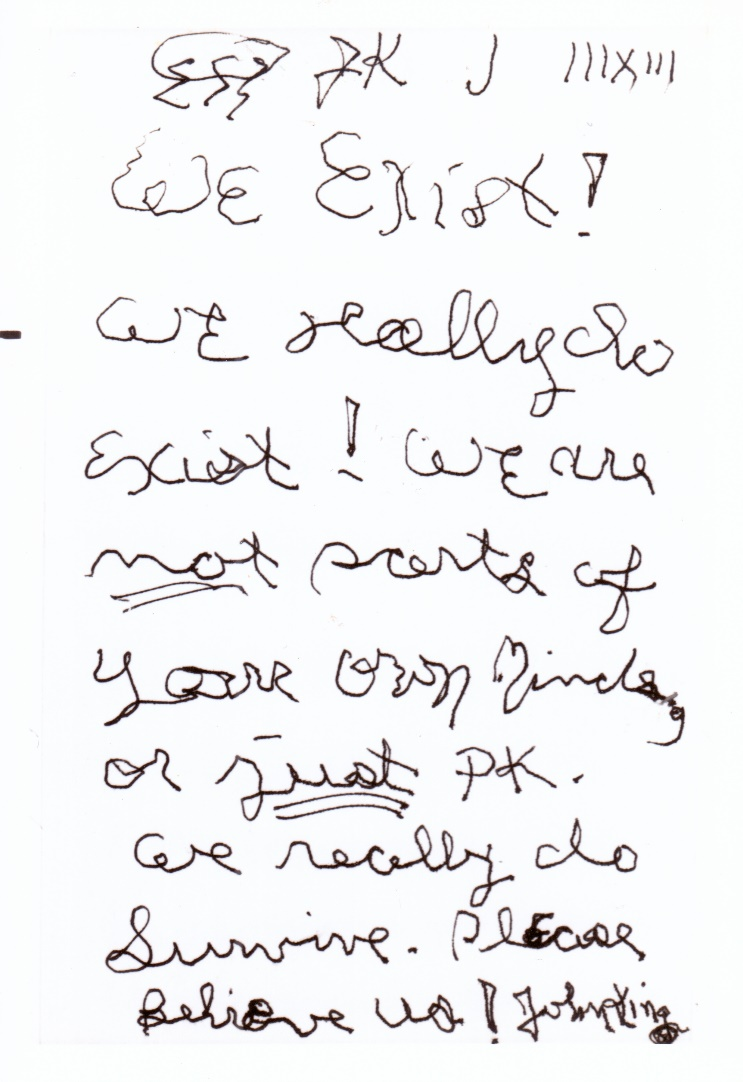 JK J IIIXIII
WE Exist!
WE really do
Exist! WE are
not parts of
your own minds,
or just PK.
We really do
Survive. Please
Believe us! John King